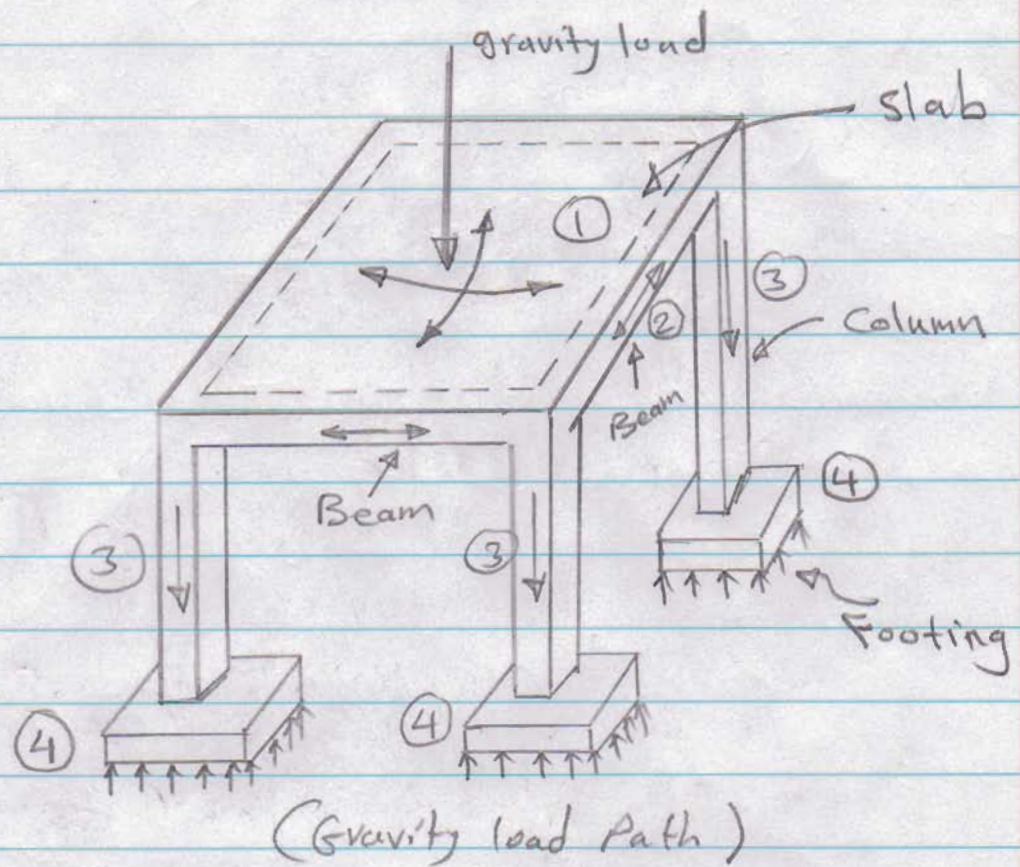 gravity load
Slab
①
③
②
Column
Beam
④
Beam
③
③
Footing
④
④
(Gravity load Path)